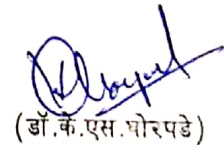 (डॉ.के.एस.घोरपडे)